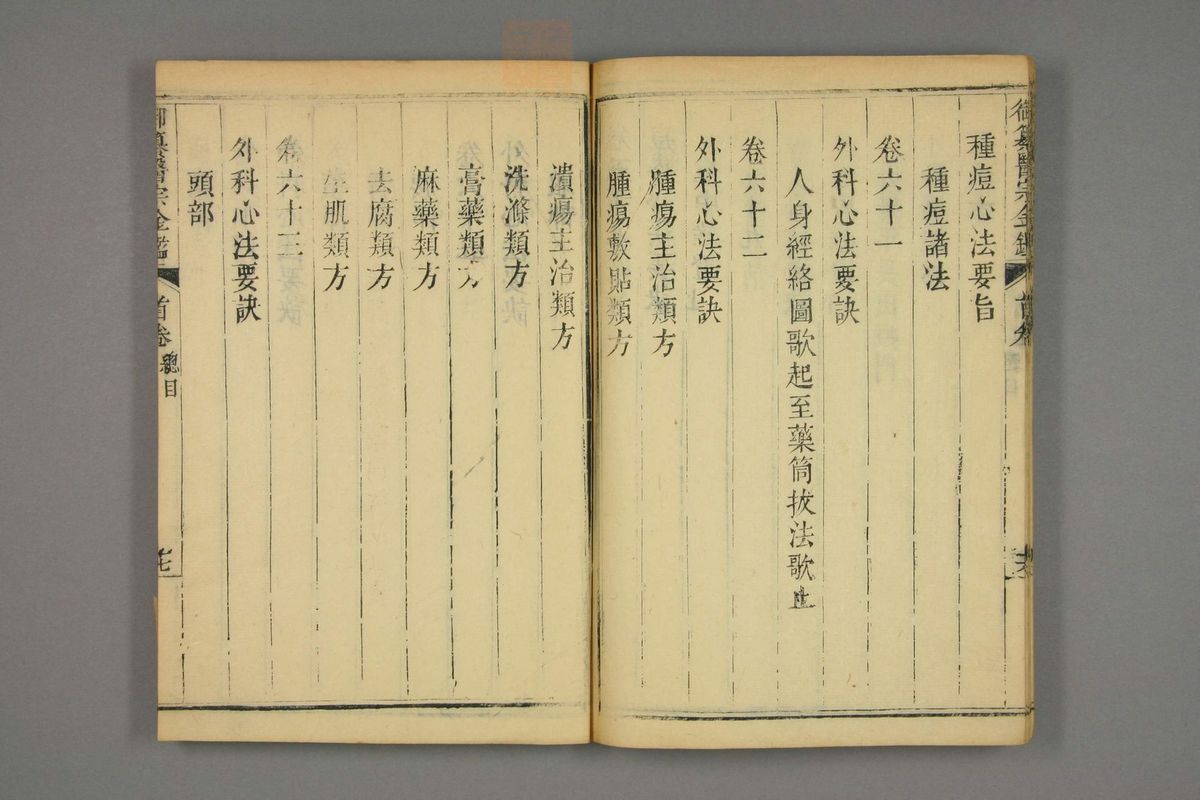 御纂醫宗金鑑 首卷
種痘心法要旨
種痘諸法
卷六十一
外科心法要訣
人身經絡圖歌起至藥筒拔法歌止
卷六十二
外科心法要訣
腫瘍主治類方
腫瘍敷貼類方
潰瘍主治類方
洗滌類方
膏藥類方
麻藥類方
去腐類方
生肌類方
卷六十三
外科心法要訣
頭部
御纂醫宗金鑑 首卷 總目 七